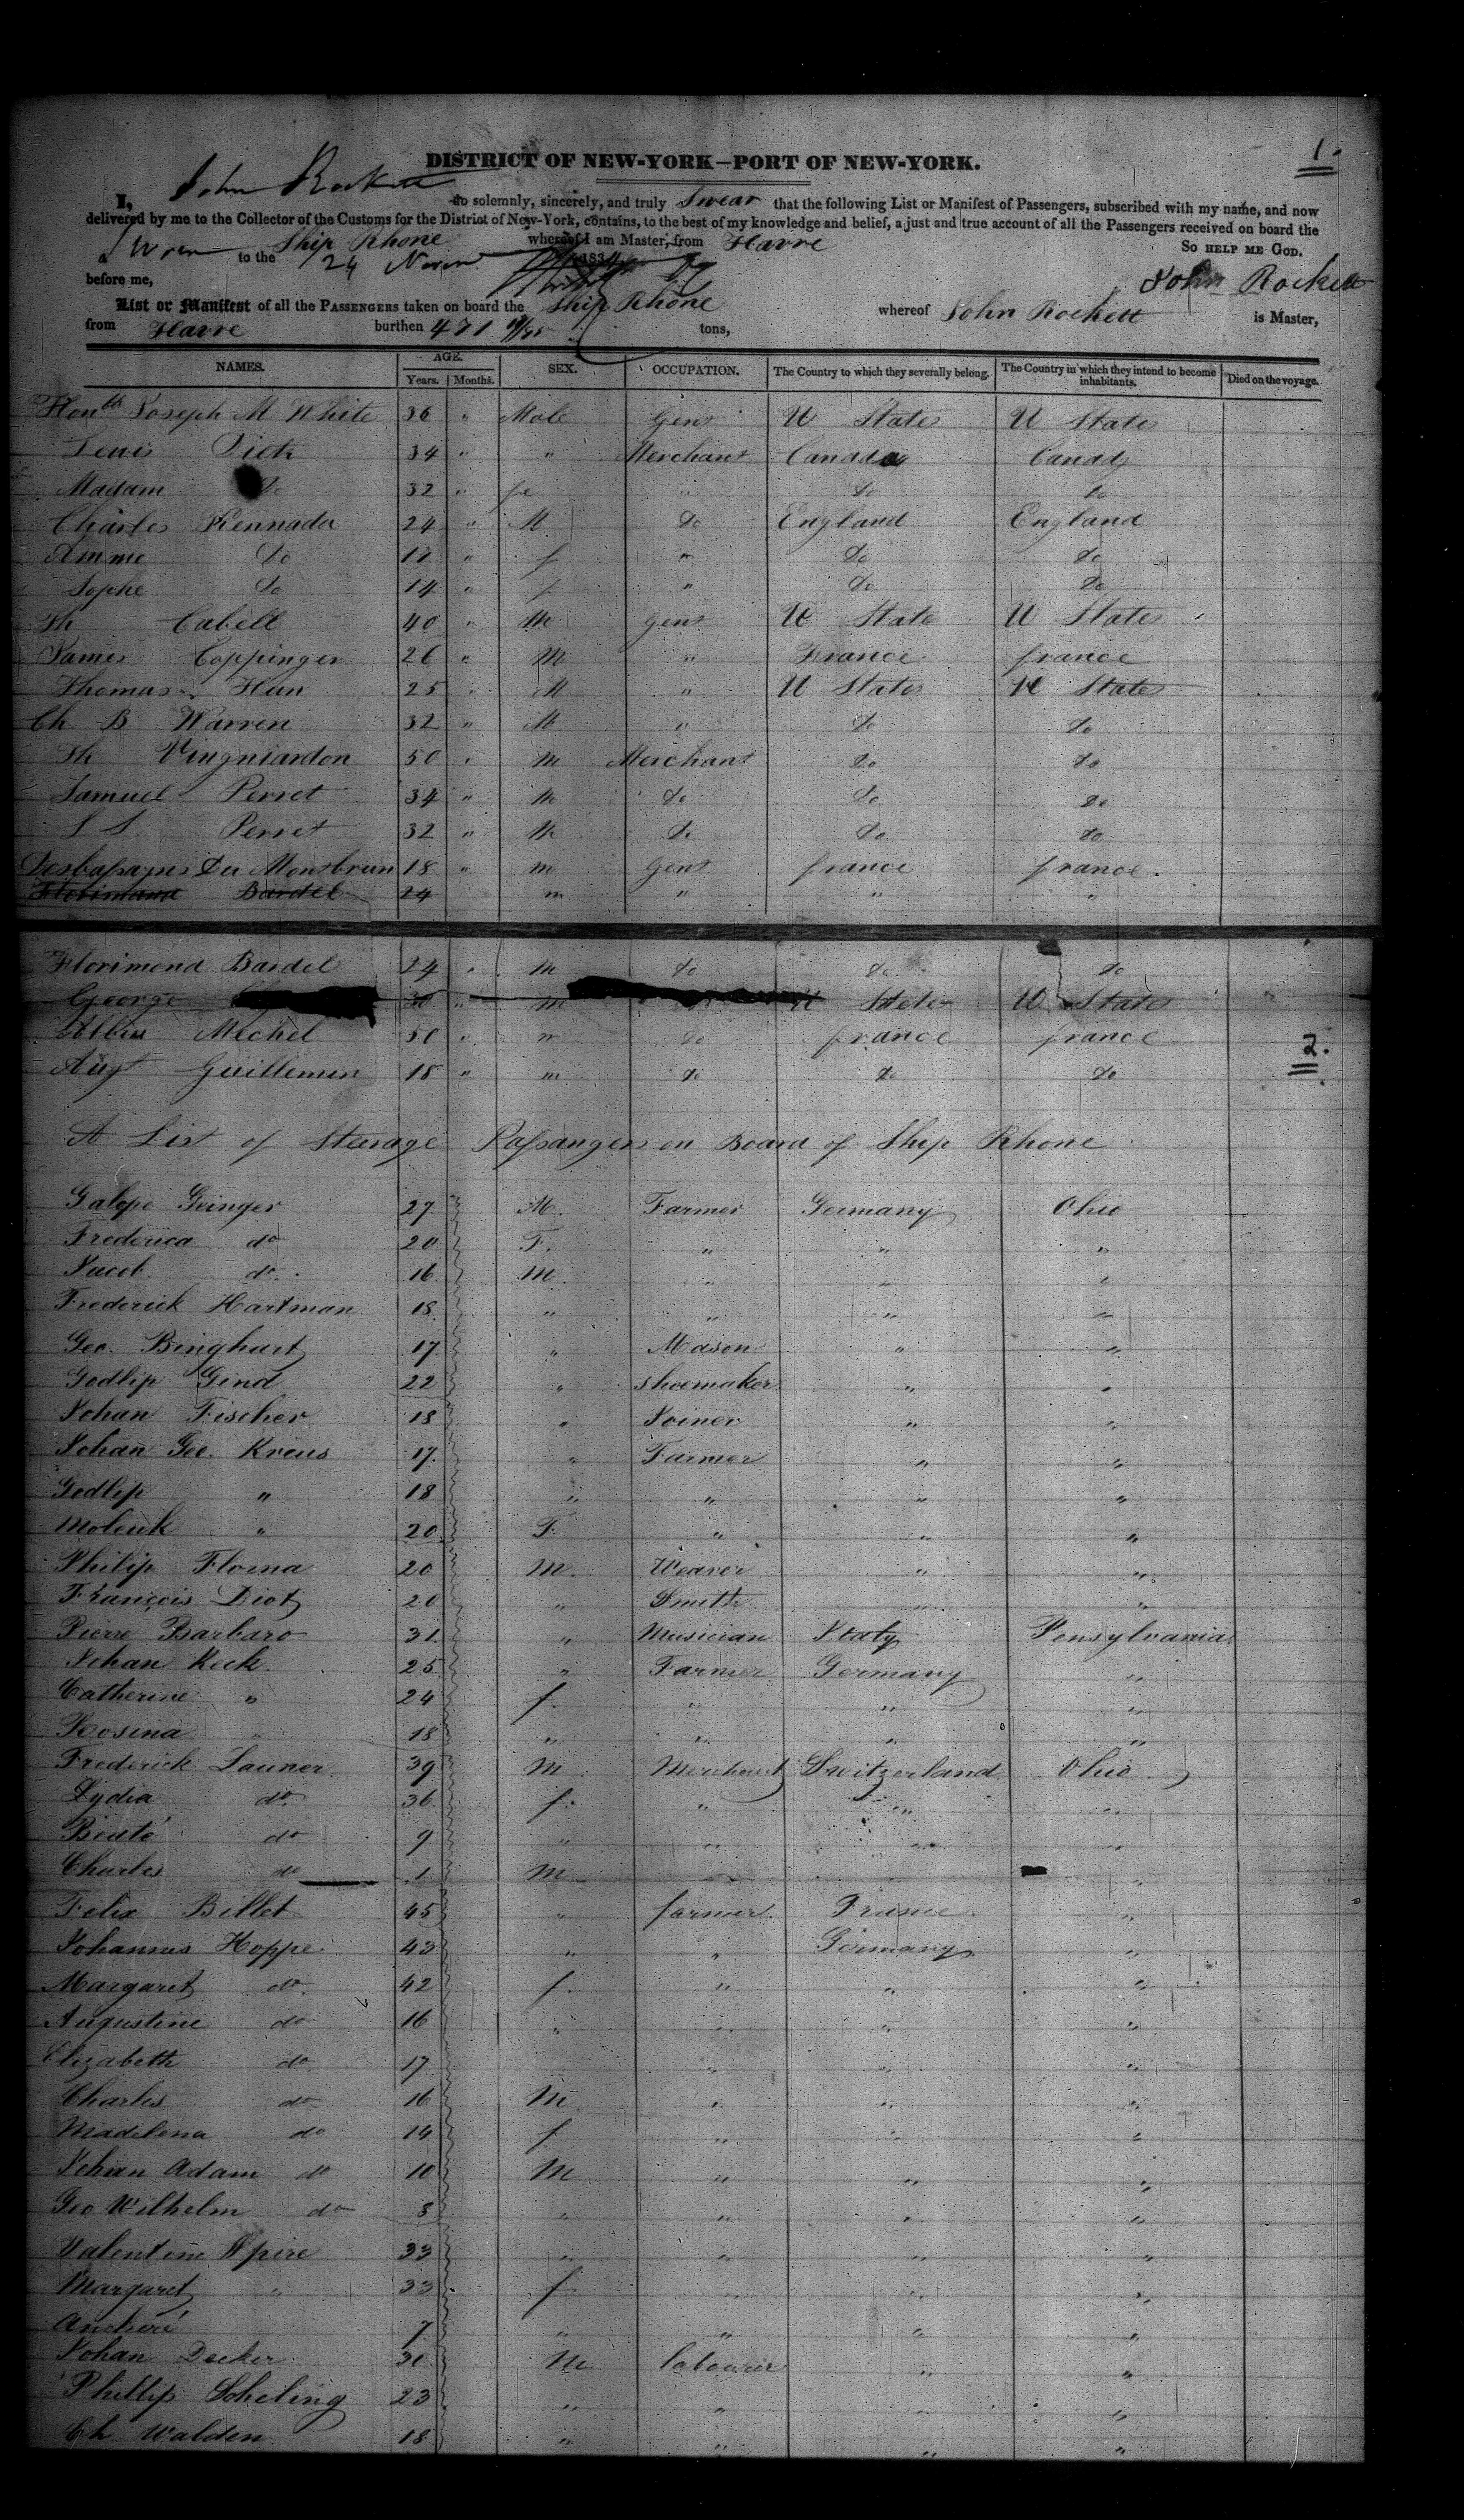 1.
DISTRICT OF NEW-YORK—PORT OF NEW-YORK.
I, John Rockett do solemnly, sincerely, and truly Swear that the following List or Manifest of Passengers, subscribed with my name, and now
delivered by me to the Collector of the Customs for the District of New-York, contains, to the best of my knowledge and belief, a just and true account of all the Passengers received on board the
Ship Rhone whereof I am Master, from Havre
Sworn to the 24 Novem 1834 So HELP ME GOD.
before me, John Rockett
List or Manifest of all the PASSENGERS taken on board the Ship Rhone whereof John Rockett is Master,
from Havre burthen 471 tons,
NAMES. AGE. Years. Months. SEX. OCCUPATION. The Country to which they severally belong. The Country in which they intend to become inhabitants. Died on the voyage.
Joseph M White 36 " Male Gent U States U States
Lewis 34 " " Merchant Canada Canady
Madam Do 32 " fe " Do Do
Charles Kennada 24 " M Do England England
Amme Do " f " Do Do
Sophe Do 14 " f " Do Do
Th Cabell 40 " M gent U State U States
James Coppinger 26 " M " France france
Thomas Hun 25 " M " U States U States
Ch B Warren 32 " M " Do Do
Th Vingniardon 50 " M Merchant Do Do
Samuel Perret 34 " M Do Do Do
Perret 32 " M Do Do Do
18 " m Gent france france.
Bardel 24 m " " "
Florimond Bardel 24 " m Do Do Do
George 30 " m U States U State
Michel 50 " m Do france france
2.
Augt Guillemin 18 " m Do Do Do
A List of Steerage Passangers on Board of Ship Rhone
Galope Geinger 27 M. Farmer Germany Ohio
Frederica do 20 F. " " "
Jacob do. 16 M. " " "
Frederick Hartman 18 " " " "
Geo. Binghart 17 " Mason " "
Godlip Gind 22 " Shoemaker " "
Johan Fischer 18 " Joiner " "
Johan Geo. Kreus 17 " Farmer " "
Godlip " 18 " " " "
" 20 F. " " "
Philip Floma 20 M. Weaver " "
François Diot 20 " Smith " "
Pierre Barbaro 31 " Musician Italy Pensylvania
Johan Keck 25 " Farmer Germany "
Catherine " 24 f. " " "
Rosina " 18 " " " "
Frederick Launer 39 M. Merchant Switzerland Ohio
Lydia do 36 f. " " "
do 9 " " " "
Charles do 1 M. " " "
Felix Billet 45 " farmer. France "
Johannes Hoppe 43 " " Germany "
Margaret do. 42 f. " " "
Augustine do 16 " " " "
Elizabeth do 17 " " "
Charles do 16 M. " " "
Madelena do 14 f " " "
Johan Adam do 10 M " " "
Geo Wilhelm do 8 " " " "
Valentine 33 " " " "
Margaret " 33 f " "
7 " " " "
Johan Decker 31 M labourer " "
Phillip Scheling 23 " " " "
Ch Walden 18 " " " "